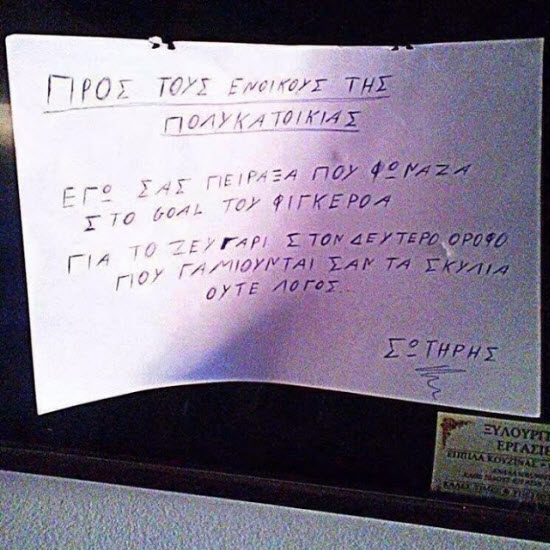 ΠΡΟΣ ΤΟΥΣ ΕΝΟΙΚΟΥΣ ΤΗΣ
ΠΟΛΥΚΑΤΟΙΚΙΑΣ
ΕΓΩ ΣΑΣ ΠΕΙΡΑΞΑ ΠΟΥ ΦΩΝΑΖΑ
ΣΤΟ GOAL ΤΟΥ ΦΙΓΚΕΡΟΑ
ΓΙΑ ΤΟ ΖΕΥΓΑΡΙ ΣΤΟΝ ΔΕΥΤΕΡΟ ΟΡΟΦΟ
ΠΟΥ ΓΑΜΙΟΥΝΤΑΙ ΣΑΝ ΤΑ ΣΚΥΛΙΑ
ΟΥΤΕ ΛΟΓΟΣ...
ΣΩΤΗΡΗΣ
ΞΥΛΟΥΡΓ
ΕΡΓΑΣΙΕ
ΕΠΙΠΛΑ ΚΟΥΖΙΝΑΣ